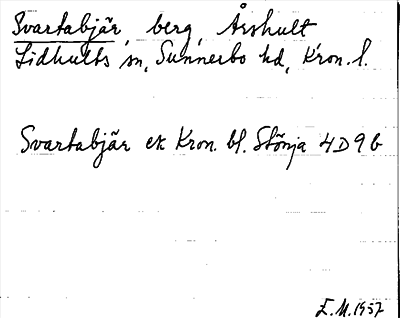 Svartabjär, berg, Årshult
Lidhults sn, Sunnerbo hd, Kron. l.
Svartabjär ek Kron. bl. Stönja 4D9b
E.M. 1957